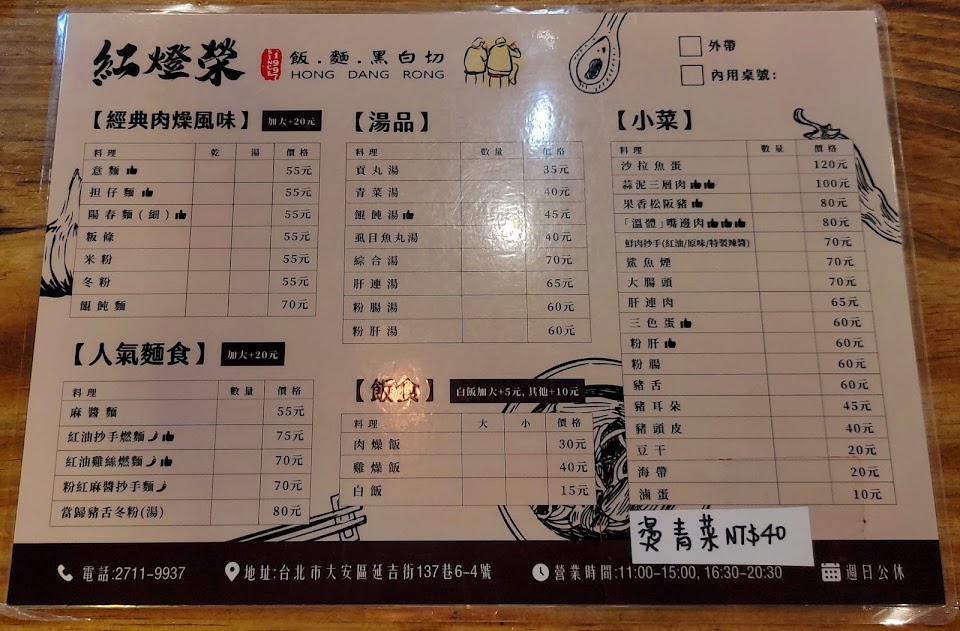 紅燈榮
SINCE 1997
飯.麵.黑白切
HONG DANG RONG
外帶
內用桌號:
【經典肉燥風味】 加大+20元
料理 乾 湯 價格
意麵 55元
担仔麵 55元
陽春麵(細) 55元
粄條 55元
米粉 55元
冬粉 55元
餛飩麵 70元
【人氣麵食】 加大+20元
料理 數量 價格
麻醬麵 55元
紅油抄手燃麵 75元
紅油雞絲燃麵 70元
粉紅麻醬抄手麵 70元
當歸豬舌冬粉(湯) 80元
【湯品】
料理 數量 價格
貢丸湯 35元
青菜湯 40元
餛飩湯 45元
虱目魚丸湯 40元
綜合湯 70元
肝連湯 65元
粉腸湯 60元
粉肝湯 60元
【飯食】 白飯加大+5元,其他+10元
料理 大 小 價格
肉燥飯 30元
雞燥飯 40元
白飯 15元
【小菜】
料理 數量 價格
沙拉魚蛋 120元
蒜泥三層肉 100元
果香松阪豬 80元
「溫體」嘴邊肉 80元
鮮肉抄手(紅油/原味/特製辣醬) 70元
鯊魚煙 70元
大腸頭 70元
肝連肉 65元
三色蛋 60元
粉肝 60元
粉腸 60元
豬舌 60元
豬耳朵 45元
豬頭皮 40元
豆干 20元
海帶 20元
滷蛋 10元
燙青菜NT$40
電話:2711-9937
地址:台北市大安區延吉街137巷6-4號
營業時間:11:00-15:00, 16:30-20:30
週日公休